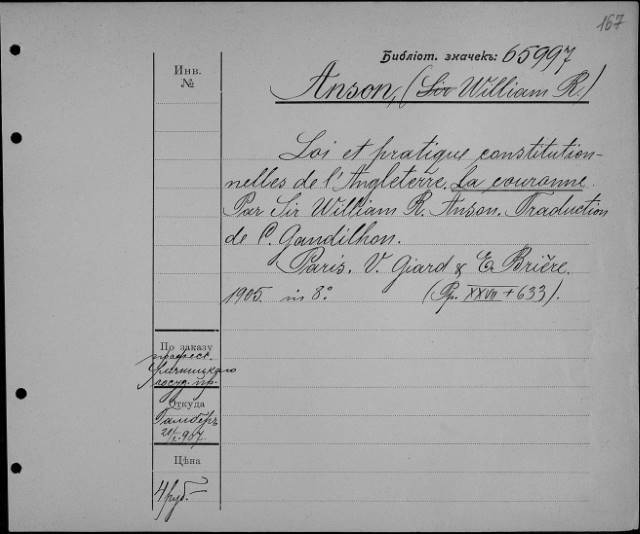 167
Библіот. значекъ: 65997
Инв.
№
Anson, (Sir William R.)
Loi et pratique constitution-
nelles de l'Angleterre. La couronne.
Par Sir William R. Anson. Traduction
de C. Gandilhon.
Paris. V. Giard & E. Brière.
1905. in 8º. (Pp. XXVII + 633).
По заказу
госуд. пр.
Откуда
907.
Цѣна
4 руб. –